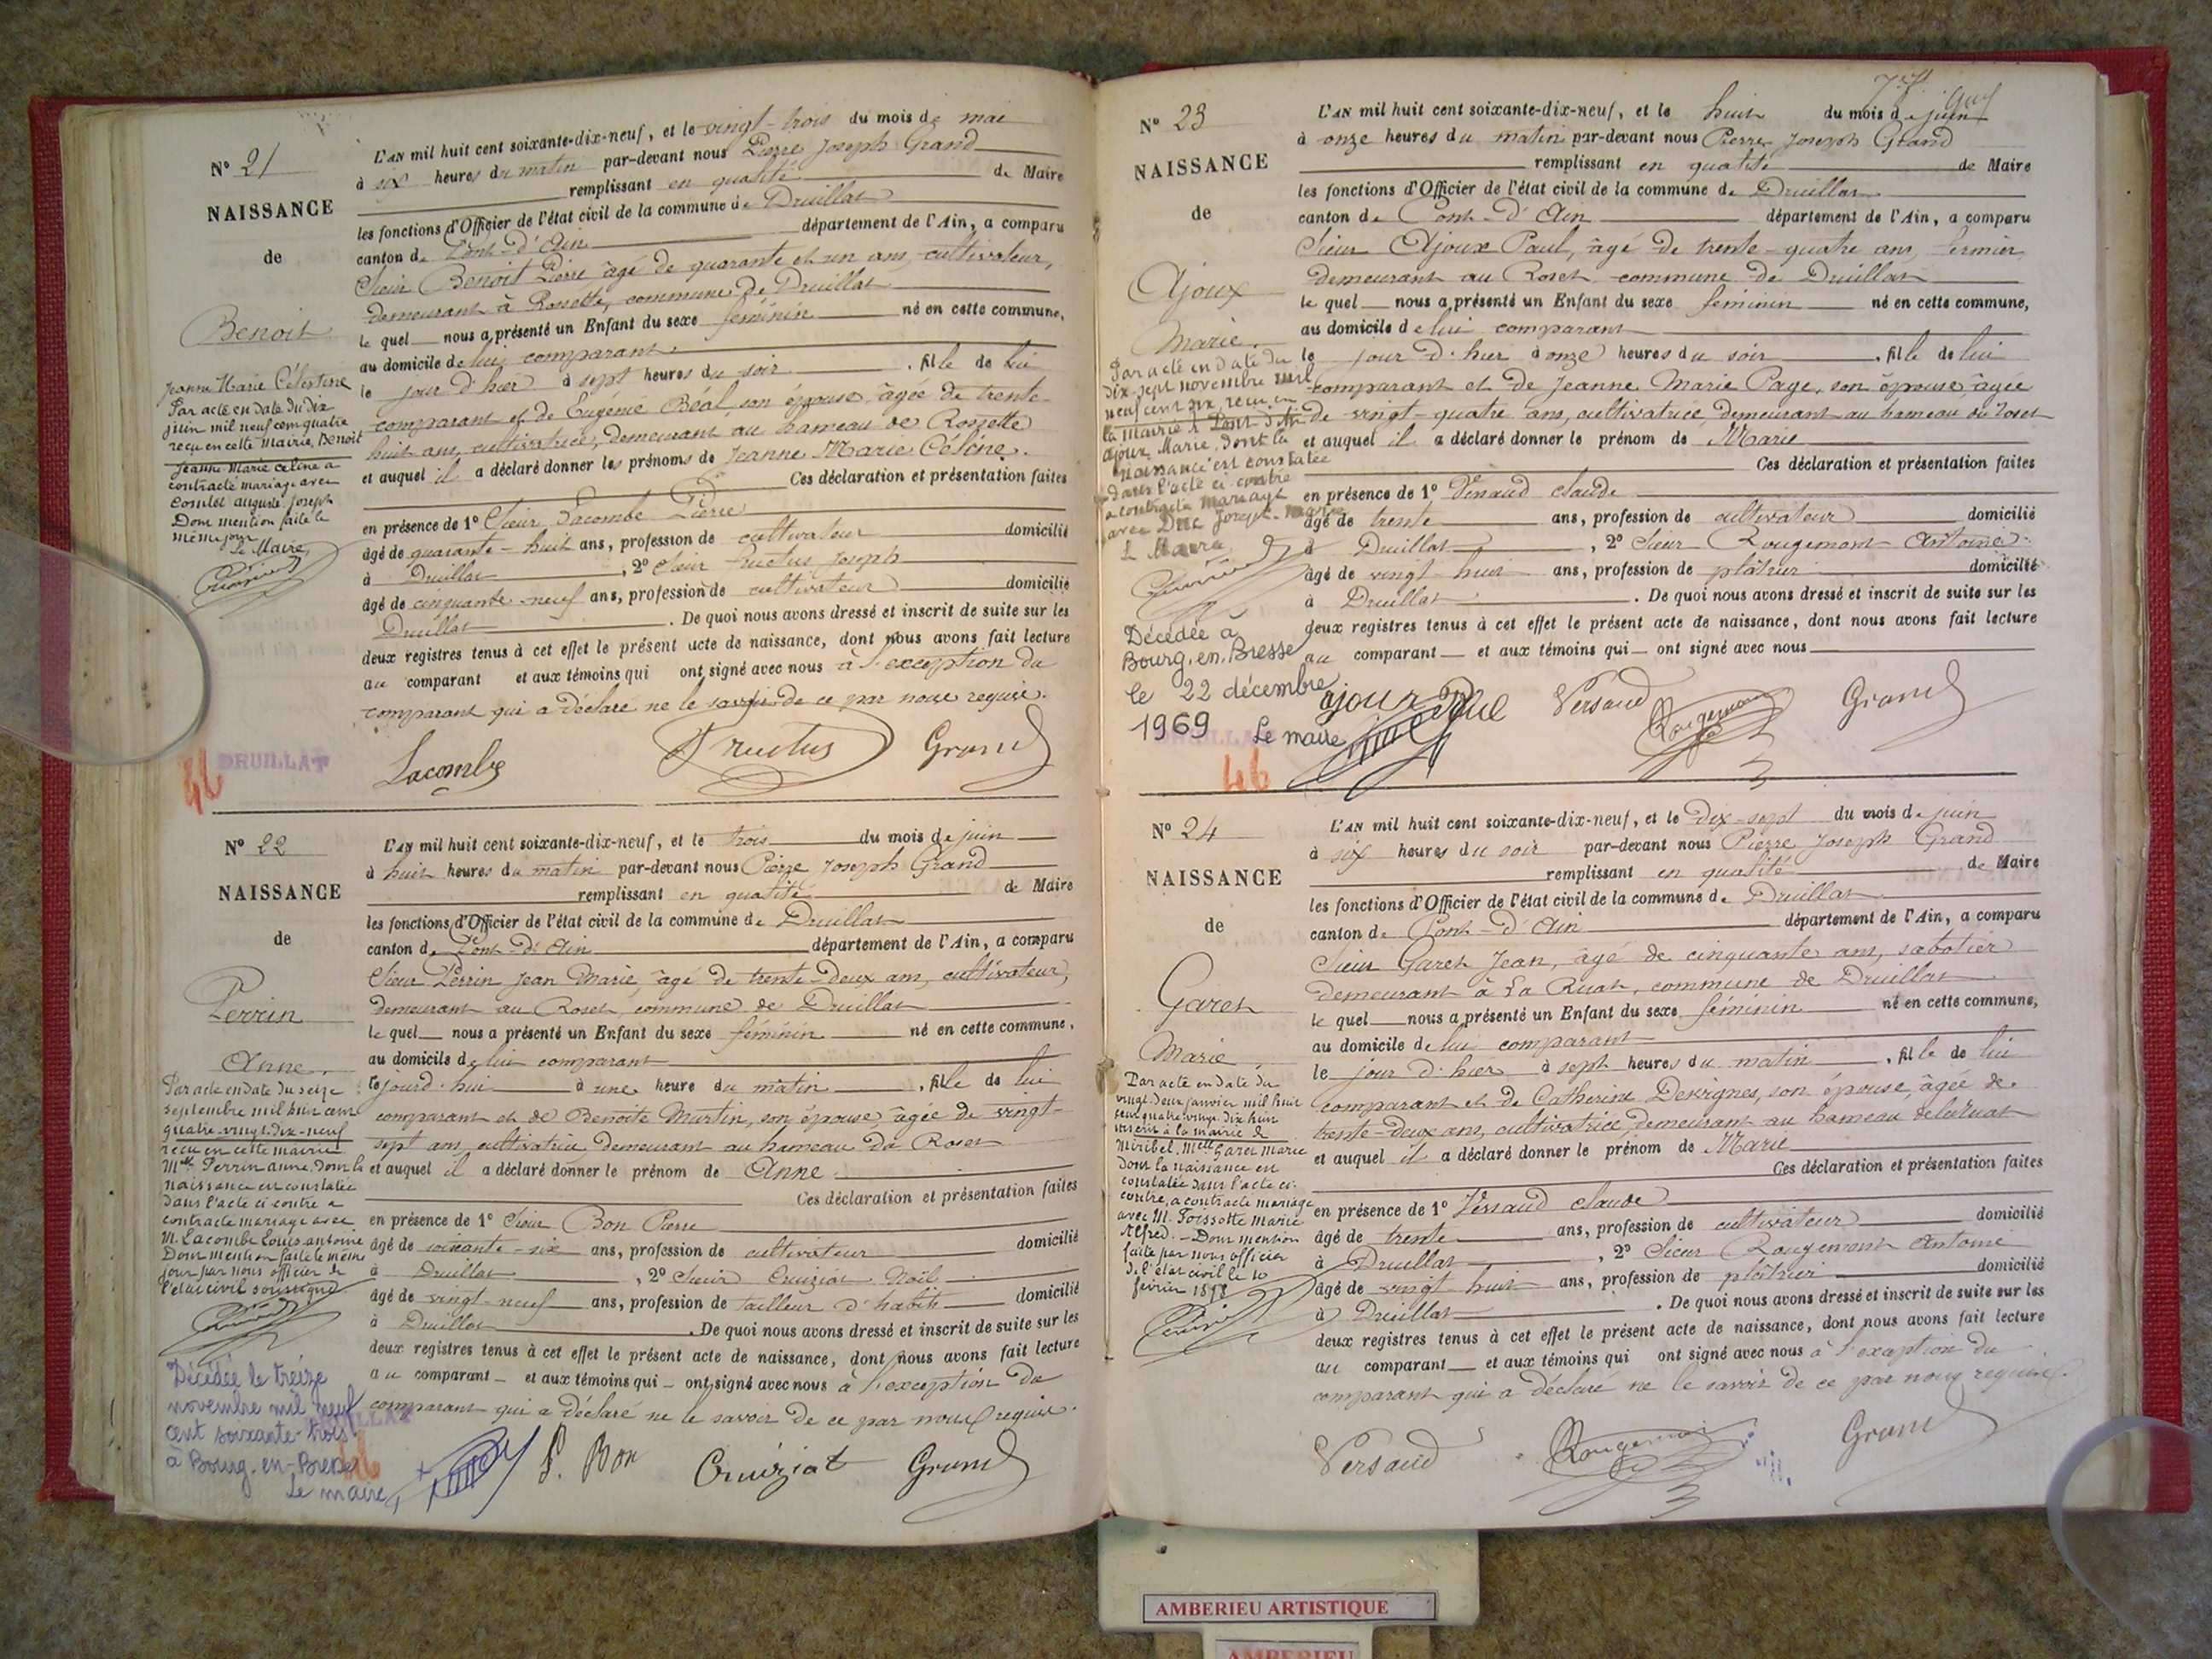 N° 21
NAISSANCE
de
Benoit
Jeanne Marie Célestine
Par acte en date du dix
juin mil neuf cent quatre
reçu en cette mairie, Benoit
Jeanne Marie celine a
contracté mariage avec
Comlet auguste Joseph
Dont mention faite le
même jour
Le Maire,
L'AN mil huit cent soixante-dix-neuf, et le vingt-trois du mois de mai
à six heures du matin par-devant nous Pierre Joseph Grand
remplissant en qualité de Maire
les fonctions d'Officier de l'état civil de la commune de Druillat
canton de Pont-d'Ain département de l'Ain, a comparu
Sieur Benoit Pierre, âgé de quarante et un ans, cultivateur,
demeurant à Rossette, commune de Druillat
le quel nous a présenté un Enfant du sexe féminin né en cette commune,
au domicile de lui comparant
le jour d'hier à sept heures du soir, fille de lui
comparant et de Eugénie Béal, son épouse, âgée de trente-
huit ans, cultivatrice, demeurant au hameau de Rossette
et auquel il a déclaré donner les prénoms de Jeanne Marie Céline.
Ces déclaration et présentation faites
en présence de 1° Sieur Lacombe Pierre
âgé de quarante-huit ans, profession de cultivateur domicilié
à Druillat, 2° Sieur Fructus Joseph
âgé de cinquante-neuf ans, profession de cultivateur domicilié
Druillat. De quoi nous avons dressé et inscrit de suite sur les
deux registres tenus à cet effet le présent acte de naissance, dont nous avons fait lecture
au comparant et aux témoins qui ont signé avec nous à l'exception du
comparant qui a déclaré ne le savoir de ce par nous requis.
DRUILLAT
Lacombe Fructus Grand
N° 22
NAISSANCE
de
Perrin
Anne.
Par acte en date du seize
septembre mil huit cent
quatre-vingt-dix-neuf
reçu en cette mairie
Mlle Perrin anne, dont la
naissance est constatée
dans l'acte ci contre a
contracté mariage avec
M. Lacombe Louis antoine
Dont mention faite le même
jour par nous officier de
l'état civil soussigné
Décédée le treize
novembre mil neuf
cent soixante-trois
à Bourg-en-Bresse
Le maire,
L'AN mil huit cent soixante-dix-neuf, et le trois du mois de juin
à huit heures du matin par-devant nous Pierre Joseph Grand
remplissant en qualité de Maire
les fonctions d'Officier de l'état civil de la commune de Druillat
canton de Pont-d'Ain département de l'Ain, a comparu
Sieur Perrin Jean Marie, âgé de trente-deux ans, cultivateur,
demeurant au Roset, commune de Druillat
le quel nous a présenté un Enfant du sexe féminin né en cette commune,
au domicile de lui comparant
cejourd'hui à une heure du matin, fille de lui
comparant et de Benoite Martin, son épouse, âgée de vingt-
sept ans, cultivatrice, demeurant au hameau du Roset
et auquel il a déclaré donner le prénom de Anne
Ces déclaration et présentation faites
en présence de 1° Sieur Bon Pierre
âgé de soixante-six ans, profession de cultivateur domicilié
à Druillat, 2° Sieur Cruiziat Noël
âgé de vingt-neuf ans, profession de tailleur d'habits domicilié
à Druillat. De quoi nous avons dressé et inscrit de suite sur les
deux registres tenus à cet effet le présent acte de naissance, dont nous avons fait lecture
au comparant et aux témoins qui ont signé avec nous à l'exception du
comparant qui a déclaré ne le savoir de ce par nous requis.
P. Bon Cruiziat Grand
N° 23
NAISSANCE
de
Ajoux
Marie.
Par acte en date du
dix-sept novembre mil
neuf cent dix, reçu en
la mairie de Pont-d'Ain
Ajoux Marie, dont la
naissance est constatée
dans l'acte ci-contre
a contracté mariage
avec Duc Joseph-Marie
L Maire
Décédée à
Bourg-en-Bresse
le 22 décembre
1969 Le maire
L'AN mil huit cent soixante-dix-neuf, et le huit du mois de juin
à onze heures du matin par-devant nous Pierre Joseph Grand
remplissant en qualité de Maire
les fonctions d'Officier de l'état civil de la commune de Druillat
canton de Pont-d'Ain département de l'Ain, a comparu
Sieur Ajoux Paul, âgé de trente-quatre ans, fermier
demeurant au Roset commune de Druillat
le quel nous a présenté un Enfant du sexe féminin né en cette commune,
au domicile de lui comparant
le jour d'hier à onze heures du soir, fille de lui
comparant et de Jeanne Marie Page, son épouse, âgée
de vingt-quatre ans, cultivatrice, demeurant au hameau du Roset
et auquel il a déclaré donner le prénom de Marie
Ces déclaration et présentation faites
en présence de 1° Versaud Claude
âgé de trente ans, profession de cultivateur domicilié
à Druillat, 2° Sieur Rougemont Antoine
âgé de vingt huit ans, profession de plâtrier domicilié
à Druillat. De quoi nous avons dressé et inscrit de suite sur les
deux registres tenus à cet effet le présent acte de naissance, dont nous avons fait lecture
au comparant et aux témoins qui ont signé avec nous
ajoux Versaud Rougemont Grand
46
N° 24
NAISSANCE
de
Garet
Marie
Par acte en date du
vingt-deux janvier mil huit
cent quatre vingt dix huit
inscrit à la mairie de
Miribel, Melle Garet Marie
dont la naissance est
constatée dans l'acte ci-
contre, a contracté mariage
avec M. Foissotte Marie
Alfred. - Dont mention
faite par nous officier
de l'état civil le 10
février 1898
L'AN mil huit cent soixante-dix-neuf, et le dix-sept du mois de juin
à six heures du soir par-devant nous Pierre Joseph Grand
remplissant en qualité de Maire
les fonctions d'Officier de l'état civil de la commune de Druillat
canton de Pont-d'Ain département de l'Ain, a comparu
Sieur Garet Jean, âgé de cinquante ans, sabotier
demeurant à La Ruat, commune de Druillat
le quel nous a présenté un Enfant du sexe féminin né en cette commune,
au domicile de lui comparant
le jour d'hier à sept heures du matin, fille de lui
comparant et de Catherine Desvignes, son épouse, âgée de
trente-deux ans, cultivatrice, demeurant au hameau de la Ruat
et auquel il a déclaré donner le prénom de Marie
Ces déclaration et présentation faites
en présence de 1° Versaud Claude
âgé de trente ans, profession de cultivateur domicilié
à Druillat, 2° Sieur Rougemont Antoine
âgé de vingt huit ans, profession de plâtrier domicilié
à Druillat. De quoi nous avons dressé et inscrit de suite sur les
deux registres tenus à cet effet le présent acte de naissance, dont nous avons fait lecture
au comparant et aux témoins qui ont signé avec nous à l'exception du
comparant qui a déclaré ne le savoir de ce par nous requis.
Versaud Rougemont Grand
AMBERIEU ARTISTIQUE
AMBERIEU